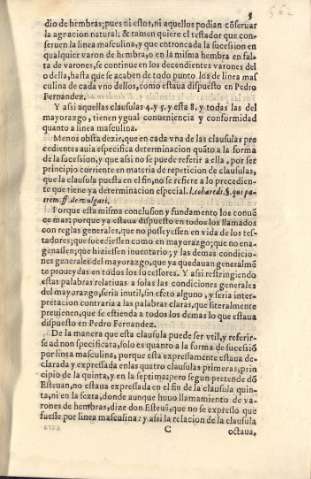 5
dio de hembras; pues ni estos, ni aquellos podian cõseruar
la agnacion natural: & tamen quiere el testador que con-
seruen la linea masculina, y que entroncada la sucession en
qualquier varon de hembra, o en la misma hembra en fal-
ta de varones, se continue en los decendientes varones del
o della, hasta que se acaben de todo punto los de linea mas
culina de cada vno dellos, como estaua dispuesto en Pedro
Fernandez.
Y assi aquellas clausulas 4. y 5. y esta 8. y todas las del
mayorazgo, tienen ygual conueniencia y conformidad
quanto a linea masculina.
Menos obsta dezir, que en cada vna de las clausulas pre
cedientes auia especifica determinacion quãto a la forma
de la sucession, y que assi no se puede referir a ella, por ser
principio corriente en materia de repeticion de clausulas,
que la clausula puesta en el fin, no se refiere a lo precedien-
te que tiene ya determinacion especial. l. cohæredi. §. qui pa-
trem. ff. de vulgari.
Porque esta misma conclusion y fundamento los conuẽ
ce mas; porque ya estaua dispuesto en todos los llamados
con reglas generales, que no posseyessen en vida de los tes-
tadores; que sucediessen como en mayorazgo; que no ena-
genassen; que hiziessen inuentario; y las demas condicio-
nes generales del mayorazgo, que ya quedauan generalmẽ
te proueydas en todos los sucessores. Y assi restringiendo
estas palabras relatiuas a solas las condiciones generales
del mayorazgo, seria inutil, sin efeto alguno, y seria inter-
pretacion contraria a las palabras claras, que literalmente
preuienen, que se estienda a todos los demas lo que estaua
dispuesto en Pedro Fernandez.
De la manera que esta clausula puede ser vtil, y referir-
se ad non specificata, solo es quanto a la forma de sucessiõ
por linea masculina, porque esta expressamente estaua de-
clarada y expressada en las quatro clausulas primeras, prin-
cipio de la quinta, y en la septima; pero segun pretende dõ
Esteuan, no estaua expressada en el fin de la clausula quin-
ta, ni en la sexta, donde aunque huuo llamamiento de va-
rones de hembras, dize don Esteuã, que no se expresso que
fuesse por linea masculina: y assi la relacion de la clausula
C
octaua,